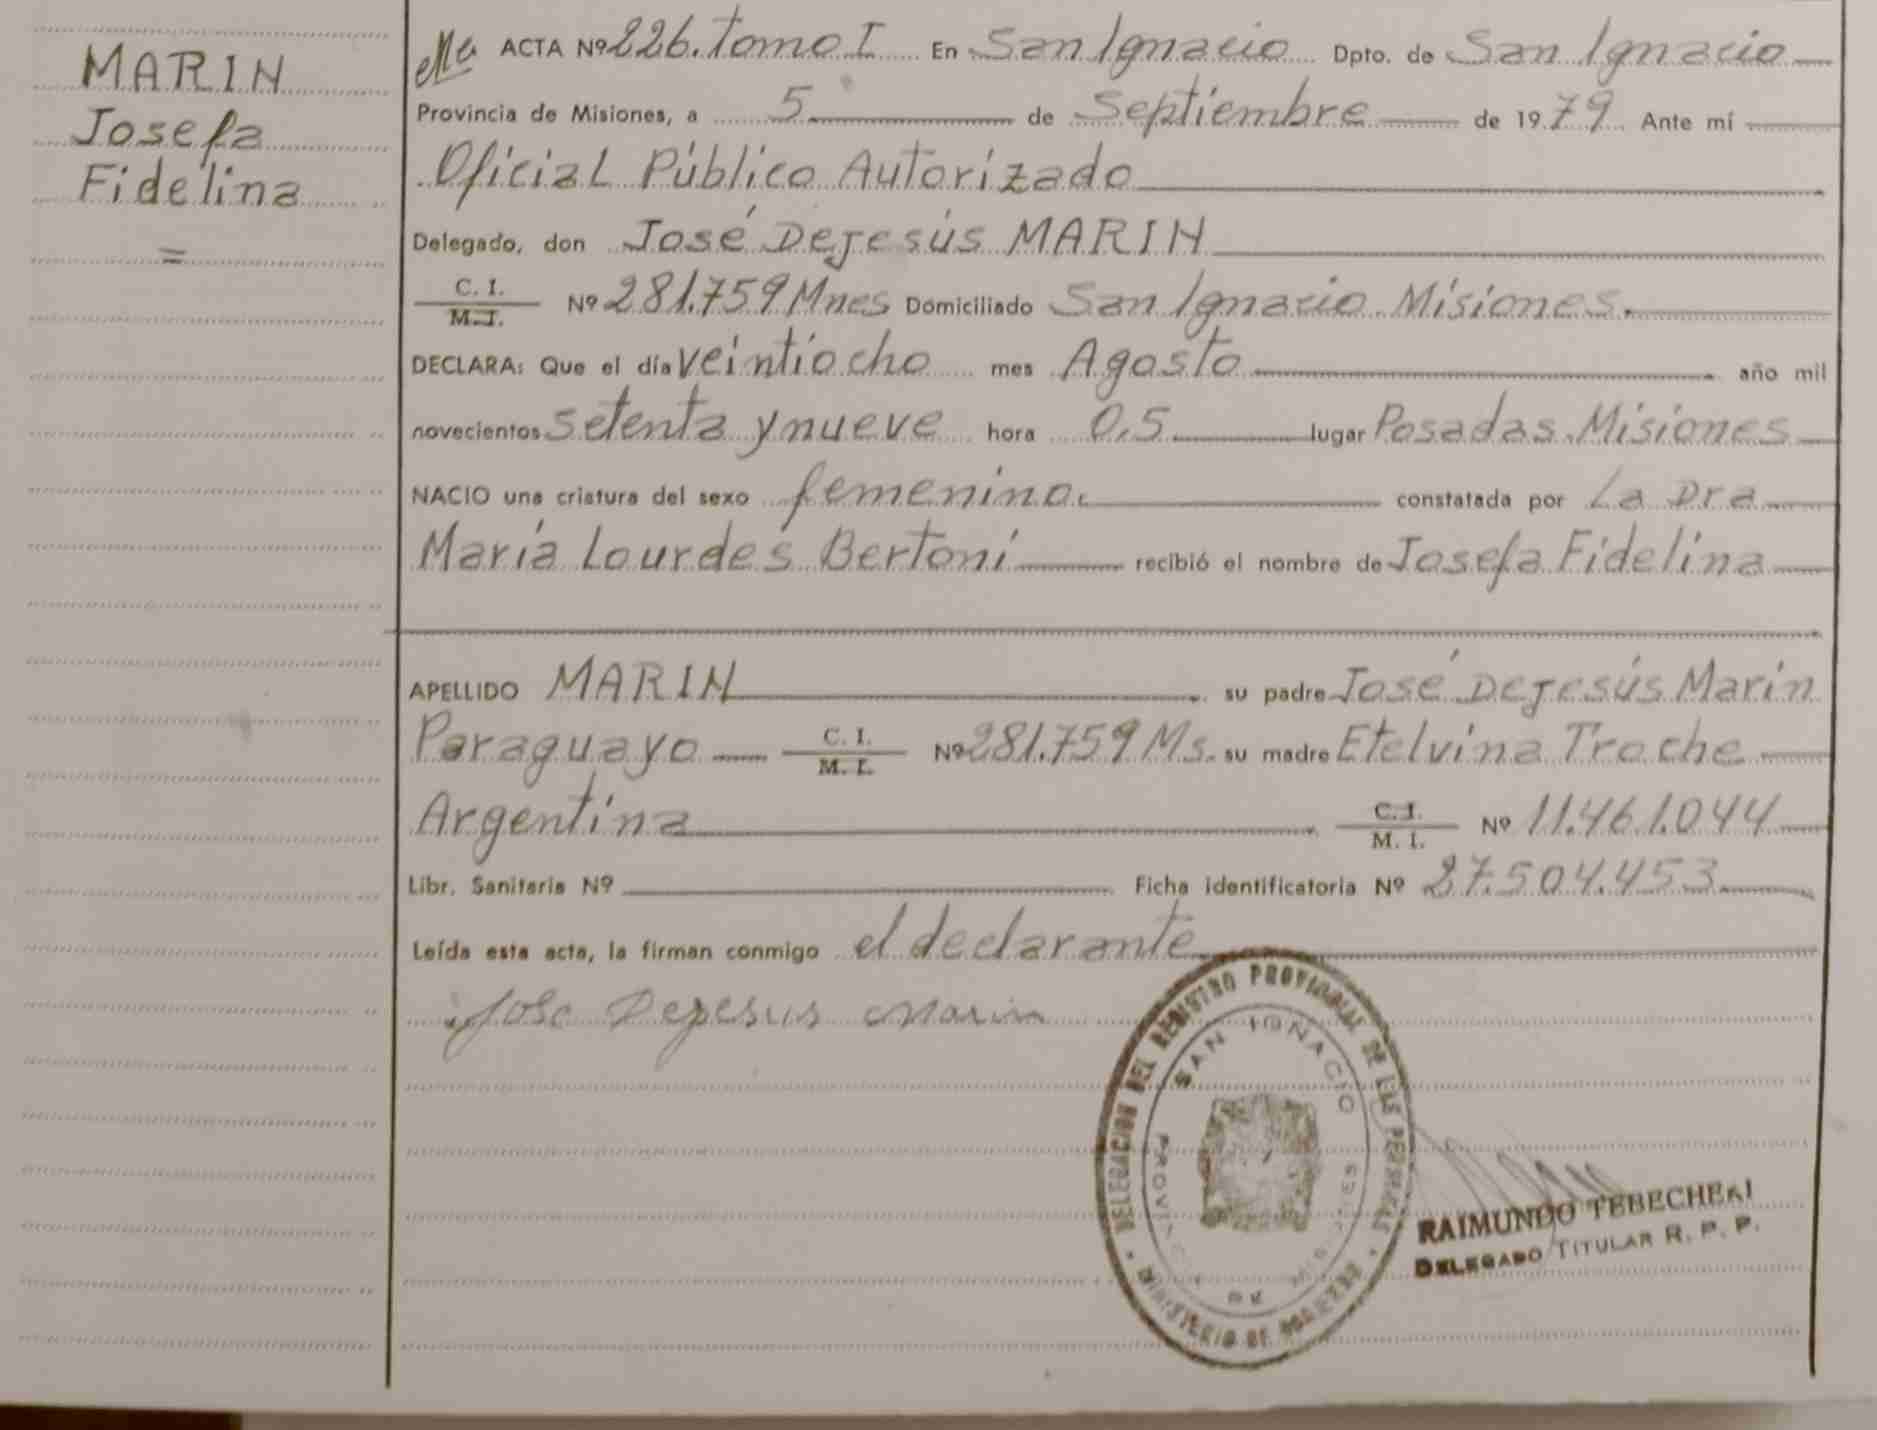 MARIN
Josefa
Fidelina
=
ACTA Nº 226. Tomo I En San Ignacio Dpto. de San Ignacio
Provincia de Misiones, a 5 de Septiembre de 1979 Ante mí
Oficial Público Autorizado
Delegado, don José Dejesús MARIN
C. I.
M. I. Nº 281.759 Mnes Domiciliado San Ignacio Misiones.
DECLARA: Que el día veintiocho mes Agosto año mil
novecientos setenta y nueve hora 0,5 lugar Posadas. Misiones
NACIO una criatura del sexo femenino. constatada por La Dra
María Lourdes Bertoni recibió el nombre de Josefa Fidelina
APELLIDO MARIN su padre José Dejesús Marin
Paraguayo C. I.
M. I. Nº 281.759 Ms. su madre Etelvina Troche
Argentina C. I.
M. I. Nº 11.461.044
Libr. Sanitaria Nº Ficha identificatoria Nº 27.504.453
Leída esta acta, la firman conmigo el declarante
Jose Dejesus Marin
DELEGACION DEL REGISTRO PROVINCIAL DE LAS PERSONAS
SAN IGNACIO
PROVINCIA DE MISIONES
MINISTERIO DE GOBIERNO
RAIMUNDO TEBECHERI
DELEGADO TITULAR R. P. P.